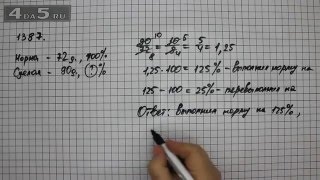 4da5.ru
1387.
Норма - 72 д., 100%
Сделал - 90 д., ?%
90/72 = 10/8 = 5/4 = 1,25
1,25·100 = 125% - выполнил норму на
125 - 100 = 25% - перевыполнил на
Ответ: выполнил норму на 125%,